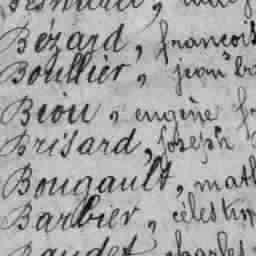 Bézard, francois
Boullier, jean b
Biou, eugène f
Brisard, Joseph
Bougault, math
Barbier, célestin
Baudet, charles